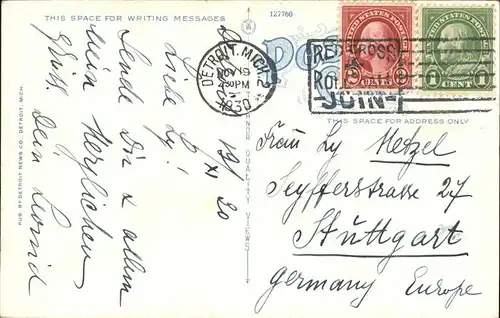 THIS SPACE FOR WRITING MESSAGES
127760
19/XI 30
Liebe Ly!
Sende Dir & allen
mein Herzlichen
Dein
DETROIT, MICH. 2
NOV 19
PM
1930
UNITED STATES POSTAGE
2 CENTS 2
UNITED STATES POSTAGE
1 CENT 1
RED CROSS
ROLL CALL
JOIN
THIS SPACE FOR ADDRESS ONLY
Frau Ly Metzel
Seyfferstrasse 27
Stuttgart
Germany Europe
PUB. BY DETROIT NEWS CO. DETROIT, MICH.
QUALITY VIEWS